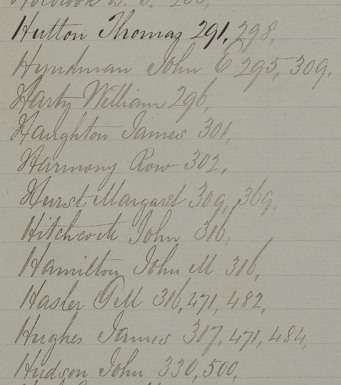 Holbrook
Hutton Thomas 291, 298,
Hyndman John E 295, 309,
Harty William 296,
Haughton James 301,
Harmony Row 302,
Hurst Margaret 309, 369,
Hitchcock John 316,
Hamilton John M 316,
Hasler G M 316, 471, 482,
Hughes James 317, 471, 484,
Hudson John 330, 500,